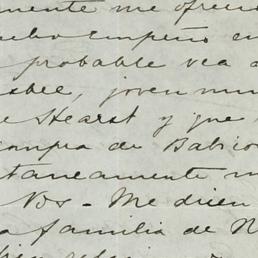 mente me ofrec
cho empeño en
probable vea a
sbee, joven mu
e Hearst y que
compra de Babico
taneamente m
Nos - Me dicen
a familia de N